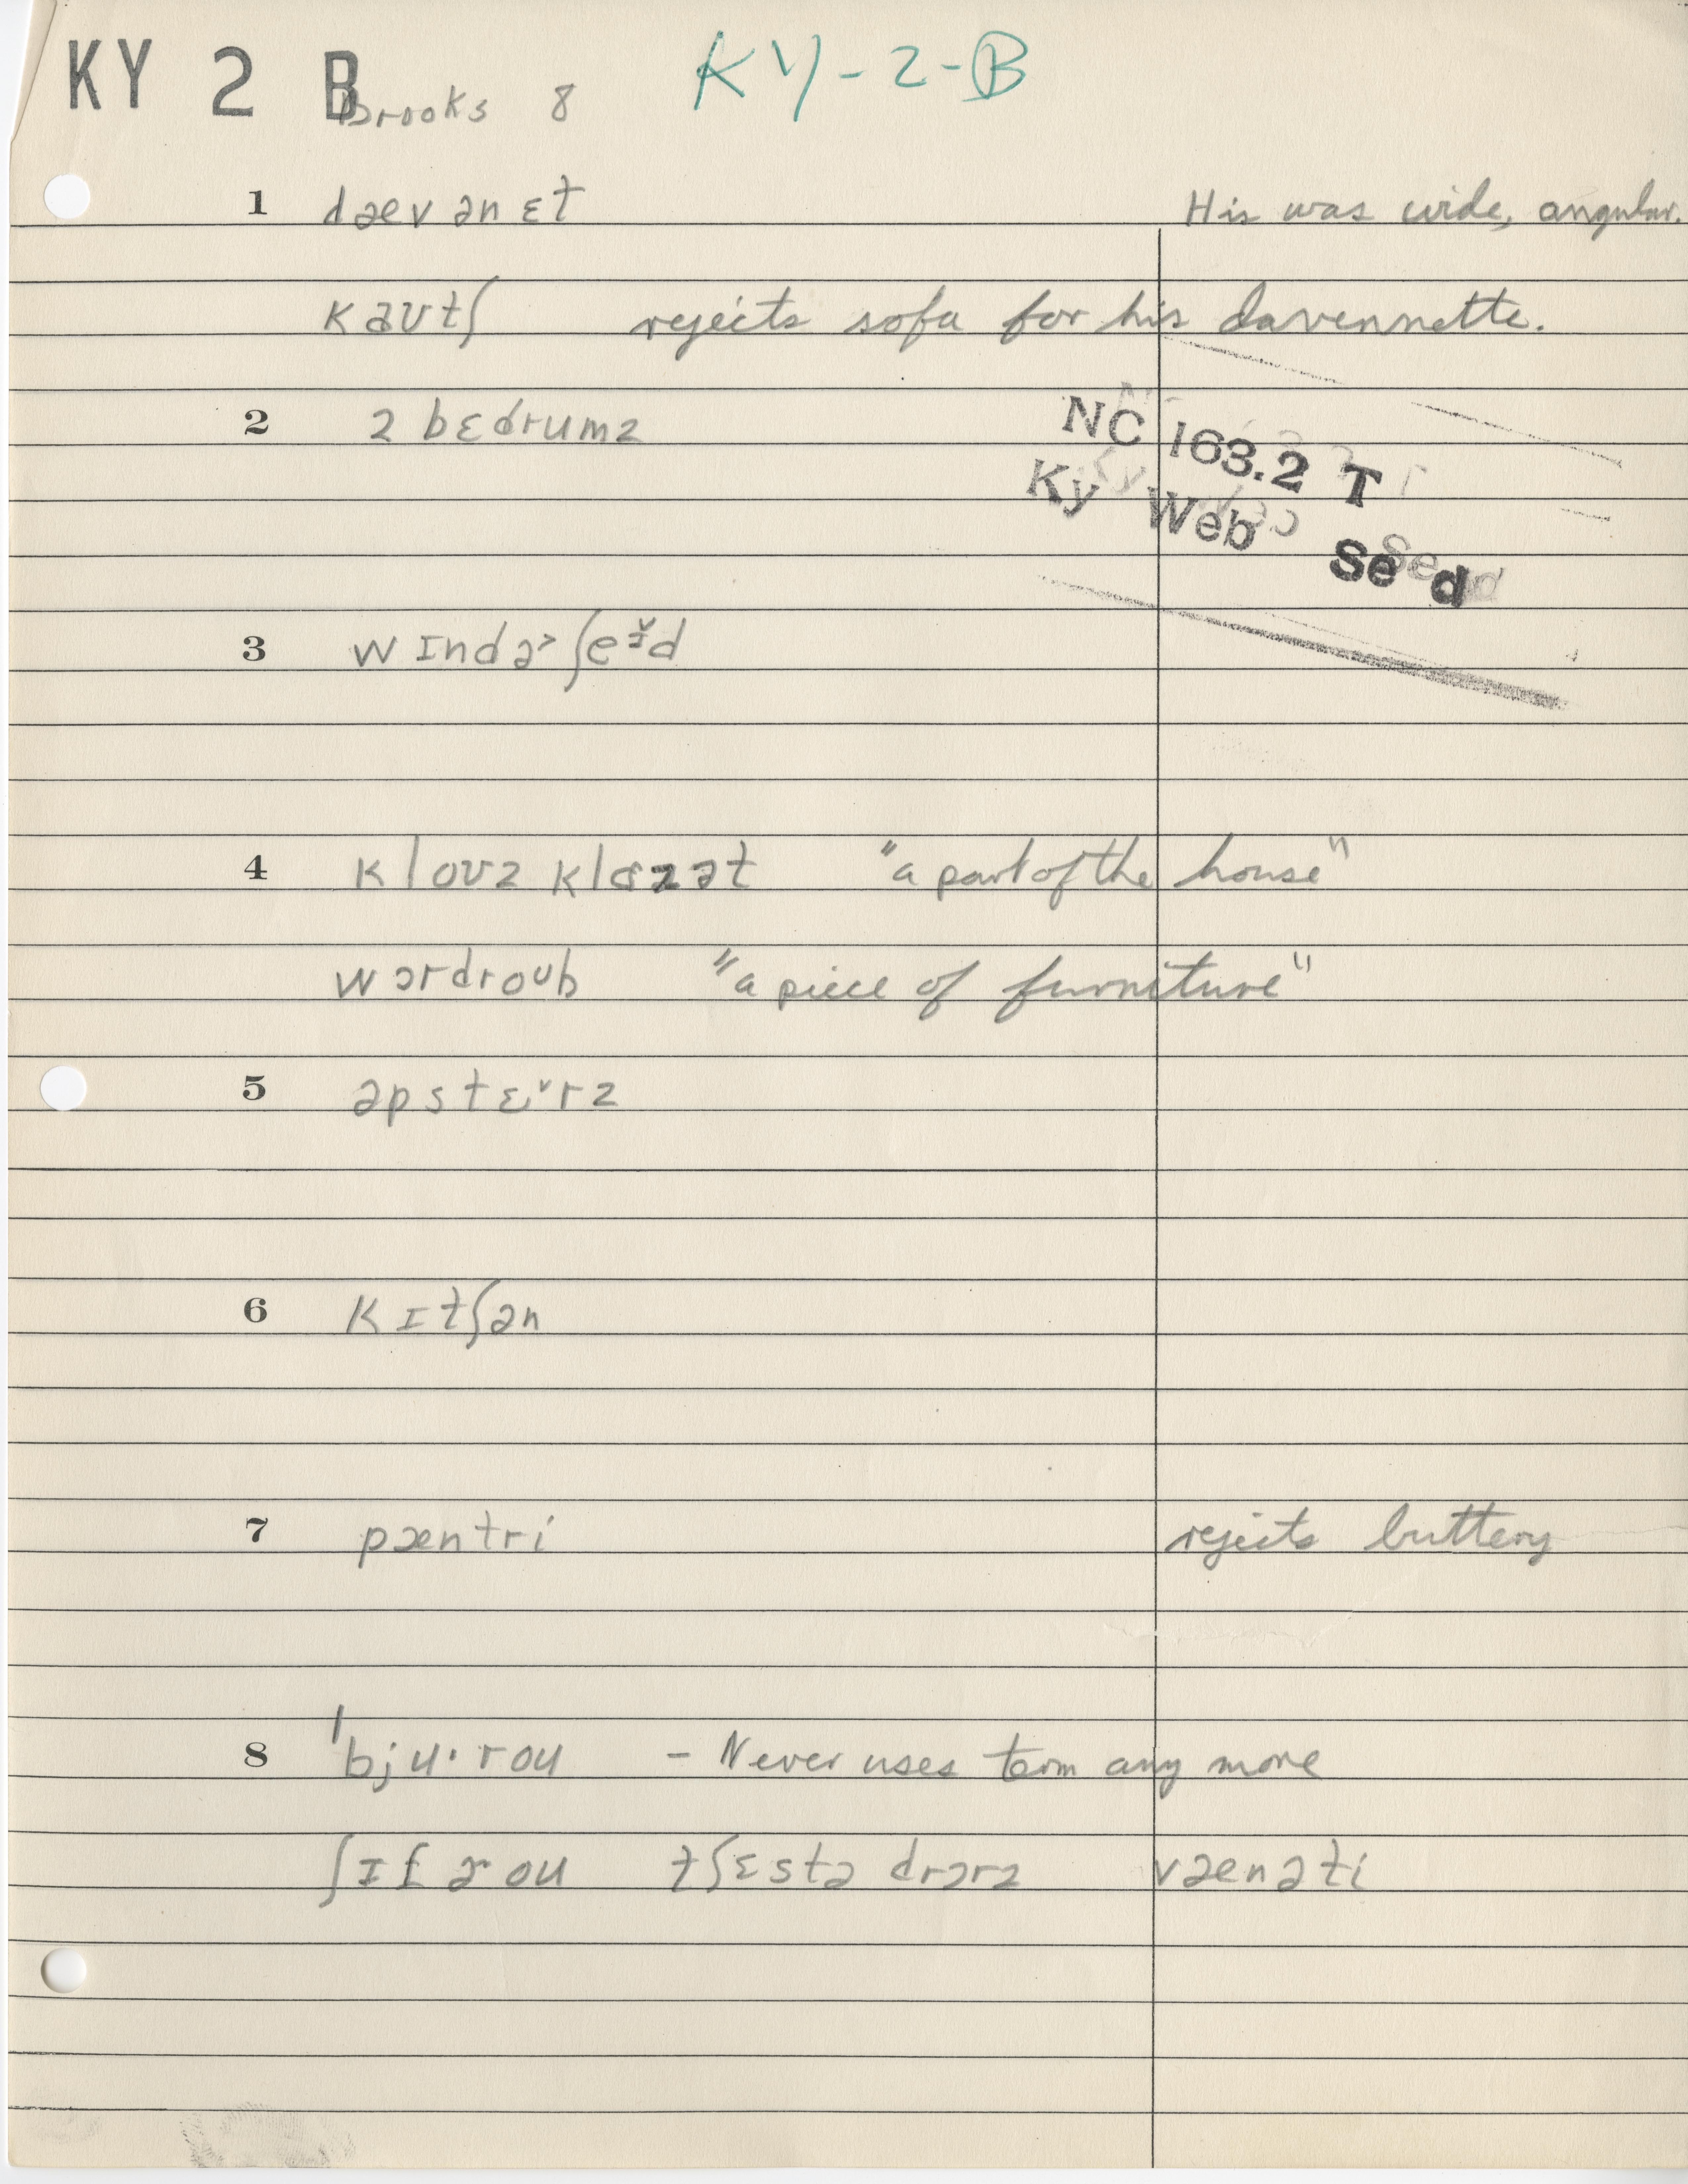 KY 2 B KY-2-B
Brooks 8
1 dævənɛt His was wide, angular.
kaʊtʃ rejects sofa for his davennette.
2 2 bɛdrumz
NC 163.2 T
Ky Web Sed
3 wɪndəʃeɪ̌d
4 kloʊz klɑzət "a part of the house"
wɔrdroʊb "a piece of furniture"
5 əpstɛˇrz
6 kɪtʃən
7 pæntri rejects buttery
8 ˈbju·rou - Never uses term any more
ʃɪfərou tʃɛstə drɔrz vænəti